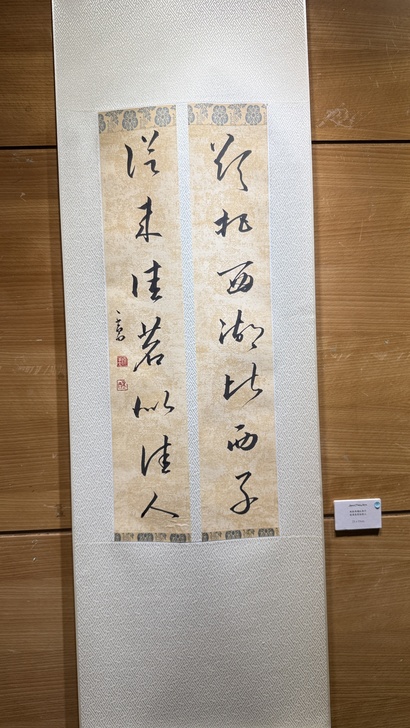 欲把西湖比西子
從来佳茗似佳人